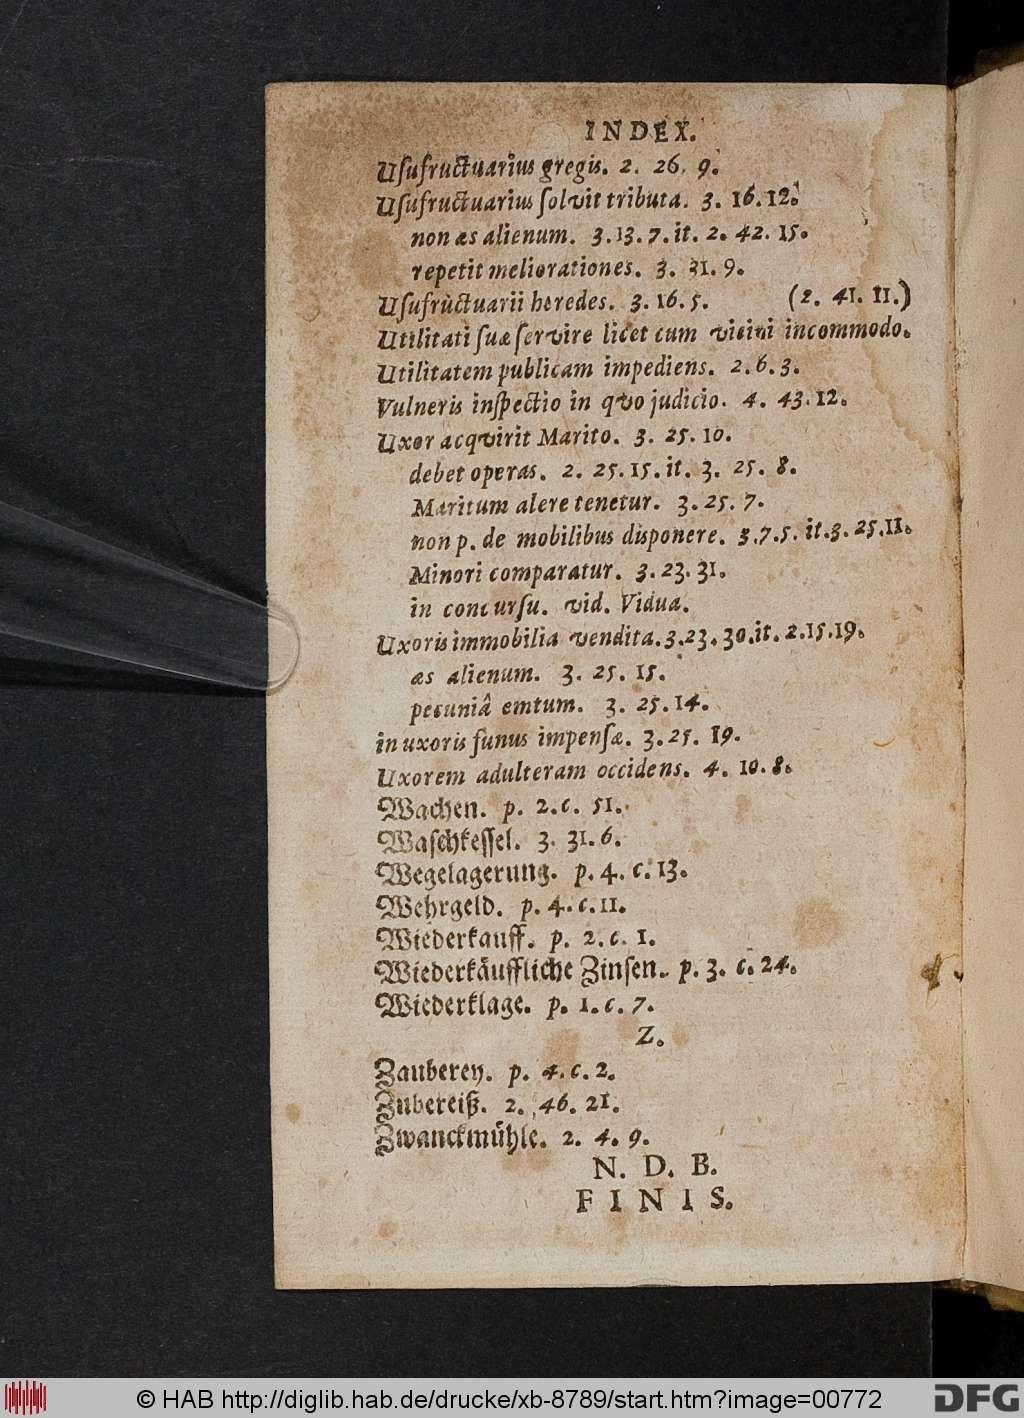 INDEX.
Uſufructuarius gregis. 2. 26. 9.
Uſufructuarius ſolvit tributa. 3. 16. 12.
non æs alienum. 3. 13. 7. it. 2. 42. 15.
repetit meliorationes. 3. 31. 9.
Uſufructuarii heredes. 3. 16. 5. (2. 41. 11.)
Utilitati ſuæ ſervire licet cum vicini incommodo.
Utilitatem publicam impediens. 2. 6. 3.
Vulneris inſpectio in quo judicio. 4. 43. 12.
Uxor acquirit Marito. 3. 25. 10.
debet operas. 2. 25. 15. it. 3. 25. 8.
Maritum alere tenetur. 3. 25. 7.
non p. de mobilibus disponere. 3. 7. 5. it. 3. 25. 11.
Minori comparatur. 3. 23. 31.
in concurſu. vid. Vidua.
Uxoris immobilia vendita. 3. 23. 30. it. 2. 15. 19.
æs alienum. 3. 25. 15.
pecuniâ emtum. 3. 25. 14.
in uxoris funus impenſæ. 3. 25. 19.
Uxorem adulteram occidens. 4. 10. 8.
Wachen. p. 2. c. 51.
Waſchkeſſel. 3. 31. 6.
Wegelagerung. p. 4. c. 13.
Wehrgeld. p. 4. c. 11.
Wiederkauff. p. 2. c. 1.
Wiederkäuffliche Zinſen. p. 3. c. 24.
Wiederklage. p. 1. c. 7.
Z.
Zauberey. p. 4. c. 2.
Zubereiß. 2. 46. 21.
Zwanckmühle. 2. 4. 9.
N. D. B.
FINIS.
© HAB http://diglib.hab.de/drucke/xb-8789/start.htm?image=00772
DFG